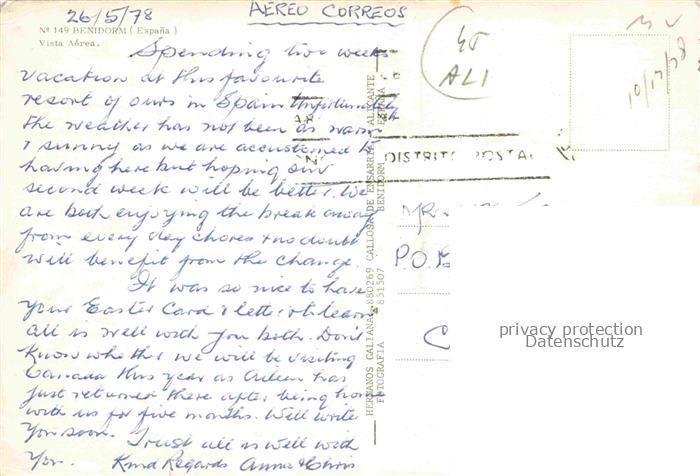 26/5/78
AEREO CORREOS
Nº 149 BENIDORM (España)
Vista Aérea.
Spending two weeks
vacation at this favourite
resort of ours in Spain. Unfortunately
the weather has not been as warm
& sunny as we are accustomed to
having here but hoping our
second week will be better. We
are both enjoying the break away
from every day chores & no doubt
will benefit from the change.
It was so nice to have
your Easter Card & letter & learn
all is well with you both. Don't
know whether we will be visiting
Canada this year as Aileen has
just returned there after being home
with us for five months. Will write
you soon. Trust all is well with
you. Kind Regards Anna & Chris
HERMANOS GALIANA 880269 CALLOSA DE ENSARRIA ALICANTE
FOTOGRAFIA 851507 BENIDORM ESPAÑA
ALI
10/12/78
DISTRITO POSTAL
P.O.
C
privacy protection
Datenschutz